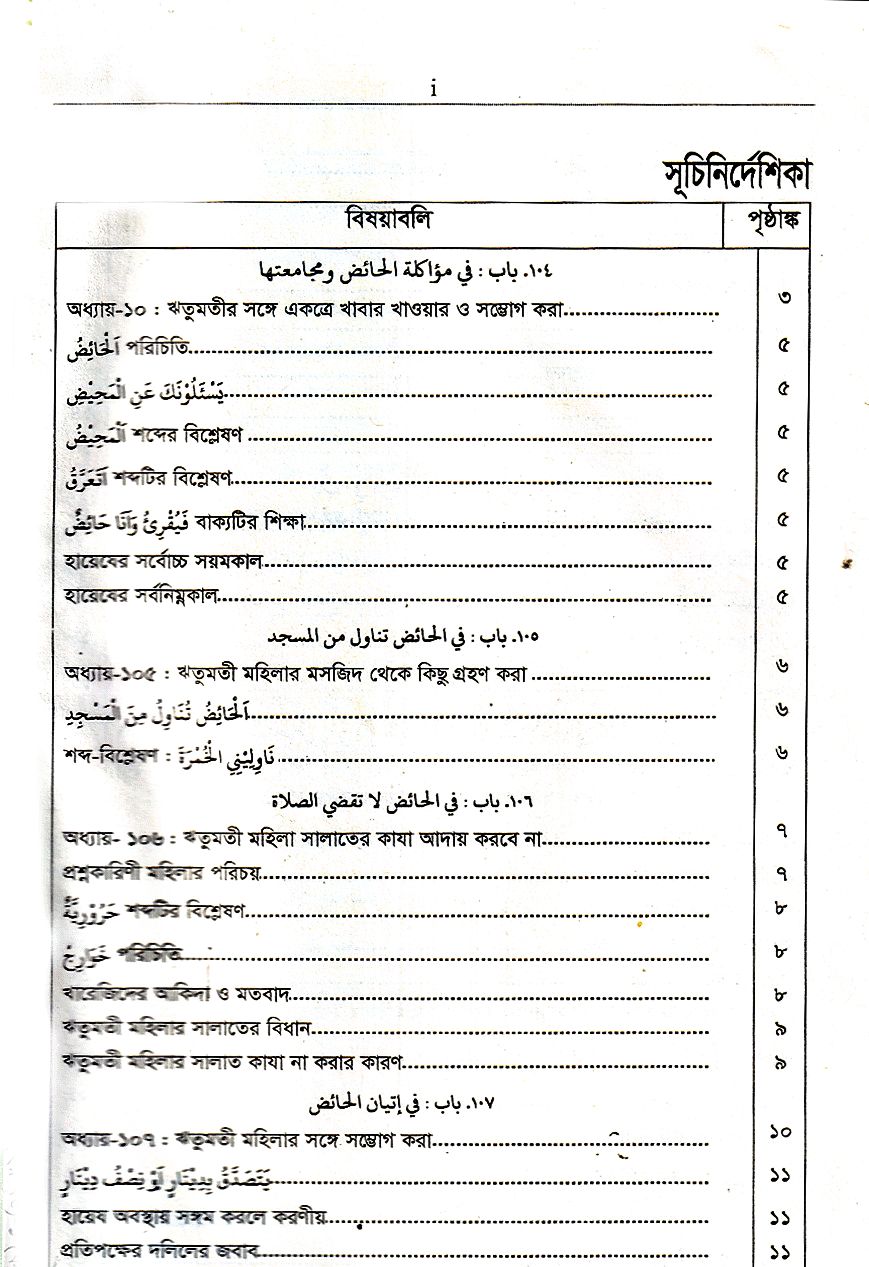 i
সূচিনির্দেশিকা
বিষয়াবলি পৃষ্ঠাঙ্ক
١٠٤. باب : في مؤاكلة الحائض ومجامعتها
অধ্যায়-১০ : ঋতুমতীর সঙ্গে একত্রে খাবার খাওয়ার ও সম্ভোগ করা........................... ৩
اَلْحَائِضُ পরিচিতি........................... ৫
يَسْئَلُوْنَكَ عَنِ الْمَحِيْضِ........................... ৫
اَلْمَحِيْضُ শব্দের বিশ্লেষণ ........................... ৫
اَتَعَرَّقُ শব্দটির বিশ্লেষণ........................... ৫
فَيُقْرِئُ وَاَنَا حَائِضٌ বাক্যটির শিক্ষা........................... ৫
হায়েযের সর্বোচ্চ সয়মকাল........................... ৫
হায়েযের সর্বনিম্নকাল........................... ৫
١٠٥. باب : في الحائض تناول من المسجد
অধ্যায়-১০৫ : ঋতুমতী মহিলার মসজিদ থেকে কিছু গ্রহণ করা ........................... ৬
اَلْحَائِضُ تُنَاوِلُ مِنَ الْمَسْجِدِ........................... ৬
শব্দ-বিশ্লেষণ : نَاوِلِيْنِي الْخُمْرَةَ........................... ৬
١٠٦. باب : في الحائض لا تقضي الصلاة
অধ্যায়- ১০৬ : ঋতুমতী মহিলা সালাতের কাযা আদায় করবে না........................... ৭
প্রশ্নকারিণী মহিলার পরিচয়........................... ৭
حَرُوْرِيَّةٌ শব্দটির বিশ্লেষণ........................... ৮
خَوَارِجُ পরিচিতি........................... ৮
খারেজিদের আকিদা ও মতবাদ........................... ৮
ঋতুমতী মহিলার সালাতের বিধান........................... ৯
ঋতুমতী মহিলার সালাত কাযা না করার কারণ........................... ৯
١٠٧. باب : في إتيان الحائض
অধ্যায়-১০৭ : ঋতুমতী মহিলার সঙ্গে সম্ভোগ করা........................... ১০
يَتَصَدَّقُ بِدِيْنَارٍ اَوْ نِصْفُ دِيْنَارٍ........................... ১১
হায়েয অবস্থায় সঙ্গম করলে করণীয়........................... ১১
প্রতিপক্ষের দলিলের জবাব........................... ১১